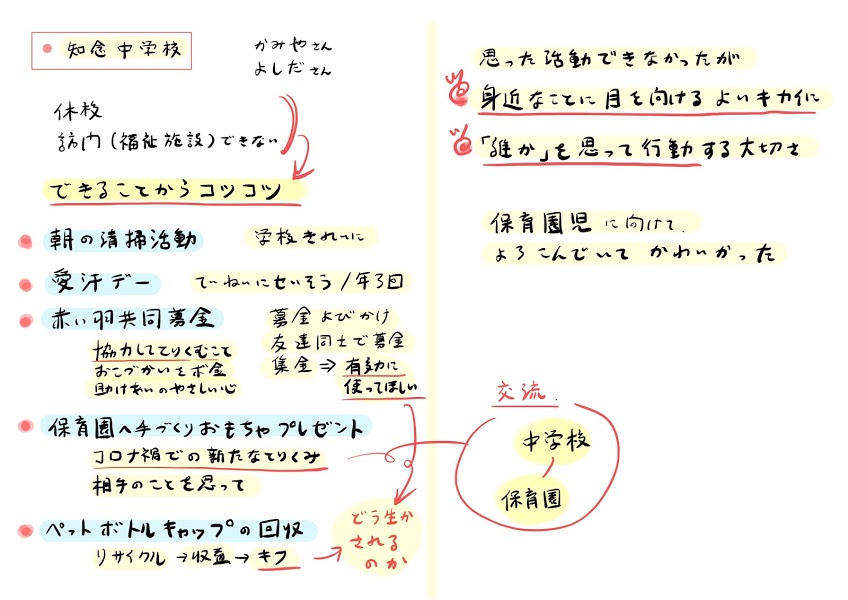 知念中学校
かみやさん
よしださん
休校
訪内(福祉施設)できない
できることからコツコツ
朝の清掃活動
学校きれいに
愛汗デー
ていねいにせいそう/年3回
赤い羽共同募金
募金よびかけ
協力してとりくむこと
友達同士で募金
おこづかいをボ金
集金⇒有効に
助けあいのやさしい心
使ってほしい
保育園へ手づくりおもちゃプレゼント
コロナ禍での新たなとりくみ
相手のことを思って
ペットボトルキャップの回収
リサイクル→収益→キフ→
どう生か
される
のか
思った活動できなかったが
身近なことに目を向けるよいキカイに
「誰か」を思って行動する大切さ
保育園児に向けて.
よろこんでいてかわいかった
交流.
中学校
保育園